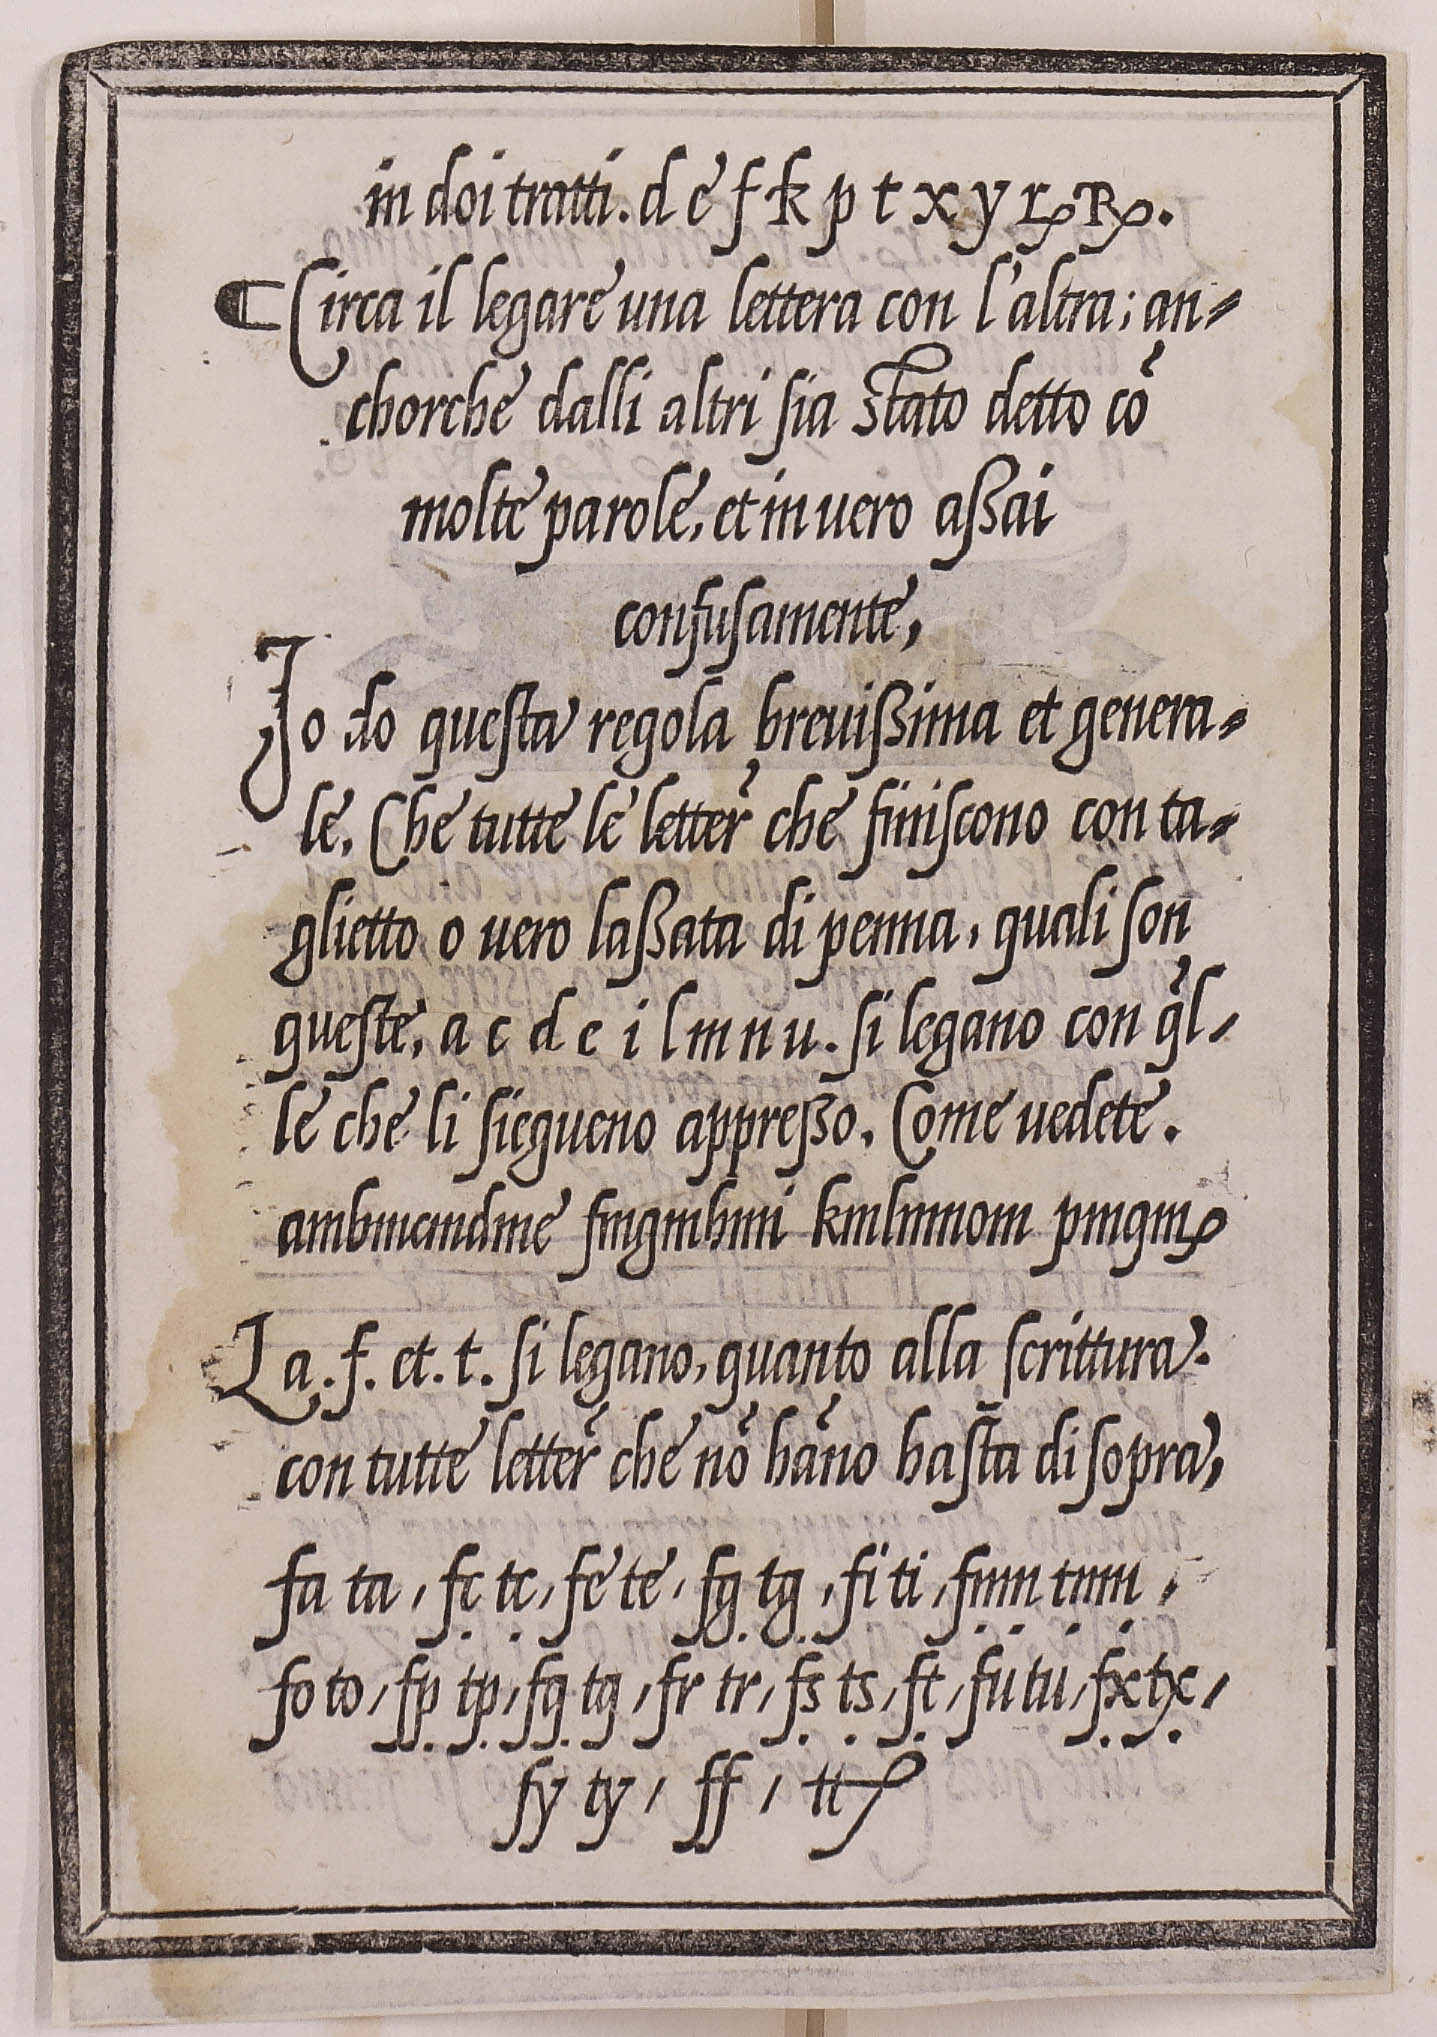 in doi tratti. d e f k p t x y ꝝ ℞.
¶ Circa il legare una lettera con l'altra; an-
chorche dalli altri sia stato detto cõ
molte parole, et in uero aßai
confusamente,
Jo do questa regola breuißima et genera-
le. Che tutte le letter̃ che finiscono con ta-
glietto o uero laßata di penna, quali son
queste, a c d e i l m n u. si legano con q̃l-
le che li siegueno appreßo. Come uedete.
ambmcmdme fmgmhmi kmlmnom pmqmꝝ
La. f. et. t. si legano, quanto alla scrittura.
con tutte letter̃ che nõ hãno hasta di sopra,
fa ta, fc tc, fe te, fg tg, fi ti, fmn tmn,
fo to, fp tp, fq tq, fr tr, fs ts, ft, fu tu, fx tx,
fy ty, ff, tt